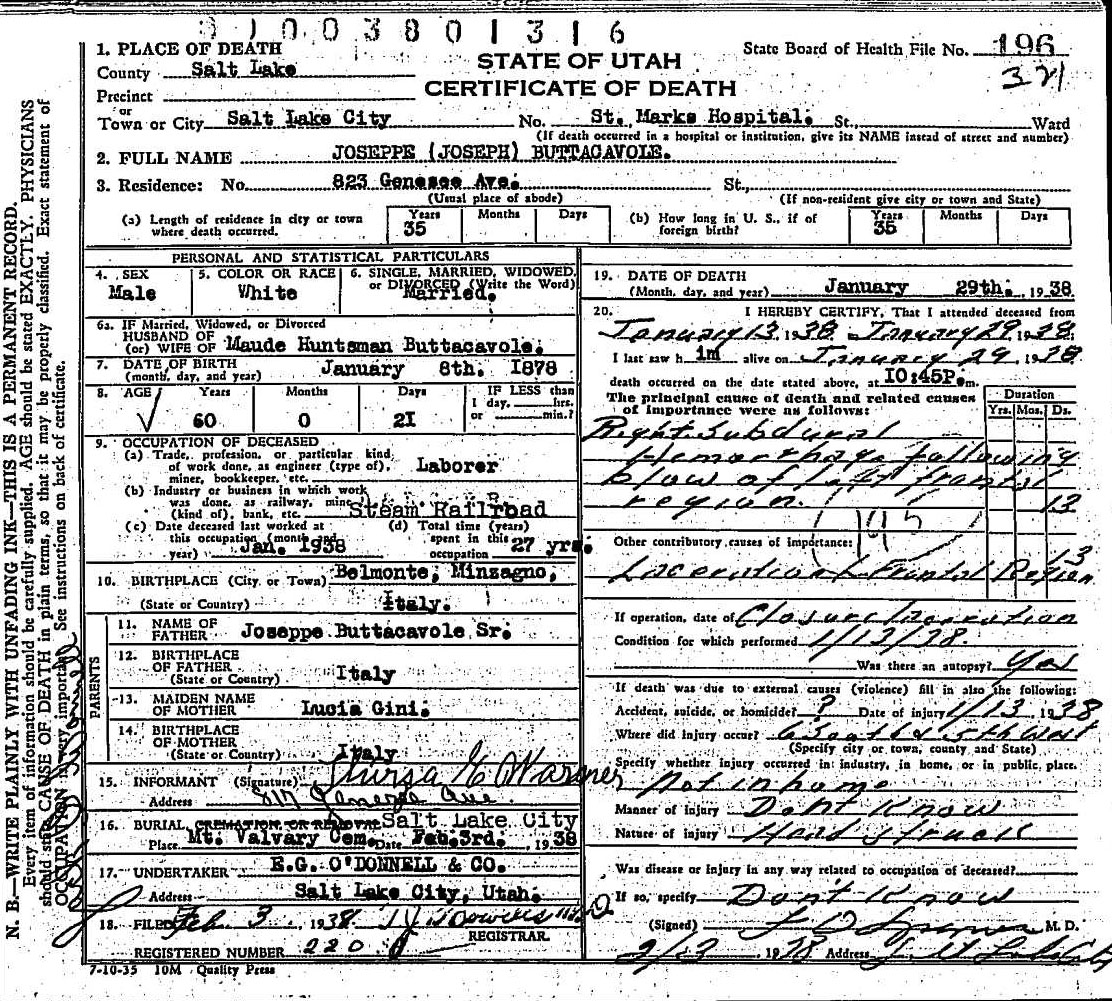 3 1 0 0 3 8 0 1 3 1 6
1. PLACE OF DEATH
County Salt Lake
Precinct
or
Town or City Salt Lake City No. St. Marks Hospital. St. Ward
(If death occurred in a hospital or institution, give its NAME instead of street and number)
STATE OF UTAH
CERTIFICATE OF DEATH
State Board of Health File No. 196
321
2. FULL NAME JOSEPPE (JOSEPH) BUTTACAVOLE.
3. Residence: No. 823 Genesee Ave. St.,
(Usual place of abode) (If non-resident give city or town and State)
(a) Length of residence in city or town where death occurred. Years 35 Months Days
(b) How long in U. S., if of foreign birth? Years 35 Months Days
PERSONAL AND STATISTICAL PARTICULARS
4. SEX Male
5. COLOR OR RACE White
6. SINGLE, MARRIED, WIDOWED, or DIVORCED (Write the Word) Married.
6a. IF Married, Widowed, or Divorced
HUSBAND OF
(or) WIFE OF Maude Huntsman Buttacavole.
7. DATE OF BIRTH
(month, day, and year) January 8th. 1878
8. AGE Years 60 Months 0 Days 21 IF LESS than 1 day, hrs. or min.?
9. OCCUPATION OF DECEASED
(a) Trade, profession, or particular kind of work done, as engineer (type of), miner, bookkeeper, etc. Laborer
(b) Industry or business in which work was done, as railway, mine (kind of), bank, etc. Steam Railroad
(c) Date deceased last worked at this occupation (month and year) Jan. 1938
(d) Total time (years) spent in this occupation 27 yrs.
10. BIRTHPLACE (City or Town) Belmonte, Minzagno,
(State or Country) Italy.
PARENTS
11. NAME OF FATHER Joseppe Buttacavole Sr.
12. BIRTHPLACE OF FATHER
(State or Country) Italy
13. MAIDEN NAME OF MOTHER Lucia Gini.
14. BIRTHPLACE OF MOTHER
(State or Country) Italy
15. INFORMANT (Signature) E Warner
Address Genesee Ave.
16. BURIAL, CREMATION OR REMOVAL Salt Lake City
Place Mt. Valvary Cem. Date Feb. 3rd. , 1938
17. UNDERTAKER E.G. O'DONNELL & CO.
Address Salt Lake City, Utah.
18. FILED Feb 3 , 1938
REGISTRAR
REGISTERED NUMBER 220
7-10-35 10M Quality Press
19. DATE OF DEATH
(Month, day, and year) January 29th. , 1938
20. I HEREBY CERTIFY, That I attended deceased from
January 13 1938 January 29 1938
I last saw him alive on January 29 , 1938
death occurred on the date stated above, at 10:45P. m.
The principal cause of death and related causes of importance were as follows:
Duration
Yrs. Mos. Ds.
Right Subdural
Hemorrhage following
blow of left frontal
region. 13
195
Other contributory causes of importance:
13
Laceration of Frontal Region
If operation, date of Closure Laceration
Condition for which performed 1/13/38.
Was there an autopsy? Yes
If death was due to external causes (violence) fill in also the following:
Accident, suicide, or homicide? ? Date of injury 1/13 1938
Where did injury occur? 6 South & 5th West
(Specify city or town, county and State)
Specify whether injury occurred in industry, in home, or in public place.
Not in home
Manner of injury Dont Know
Nature of injury Head struck
Was disease or injury in any way related to occupation of deceased?
If so, specify Don't Know
(Signed) M. D.
2/2 , 1938 Address
N. B.—WRITE PLAINLY WITH UNFADING INK—THIS IS A PERMANENT RECORD.
Every item of information should be carefully supplied. AGE should be stated EXACTLY. PHYSICIANS
should state CAUSE OF DEATH in plain terms, so that it may be properly classified. Exact statement of
OCCUPATION is very important. See instructions on back of certificate.